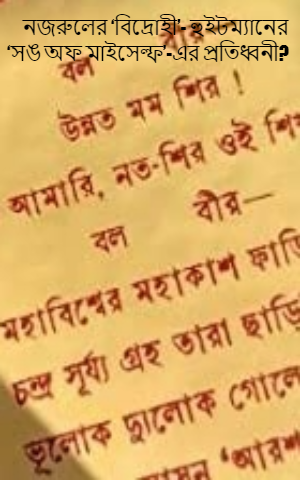 নজরুলের ‘বিদ্রোহী’- হুইটম্যানের
‘সঙ অফ মাইসেল্ফ’-এর প্রতিধ্বনী?
বল বীর
উন্নত মম শির !
আমারি, নত-শির ওই
বল বীর—
মহাবিশ্বের মহাকাশ ফাড়ি
চন্দ্র সূর্য্য গ্রহ তারা ছাড়ি
ভূলোক দ্যুলোক গোলে
‘আরশ